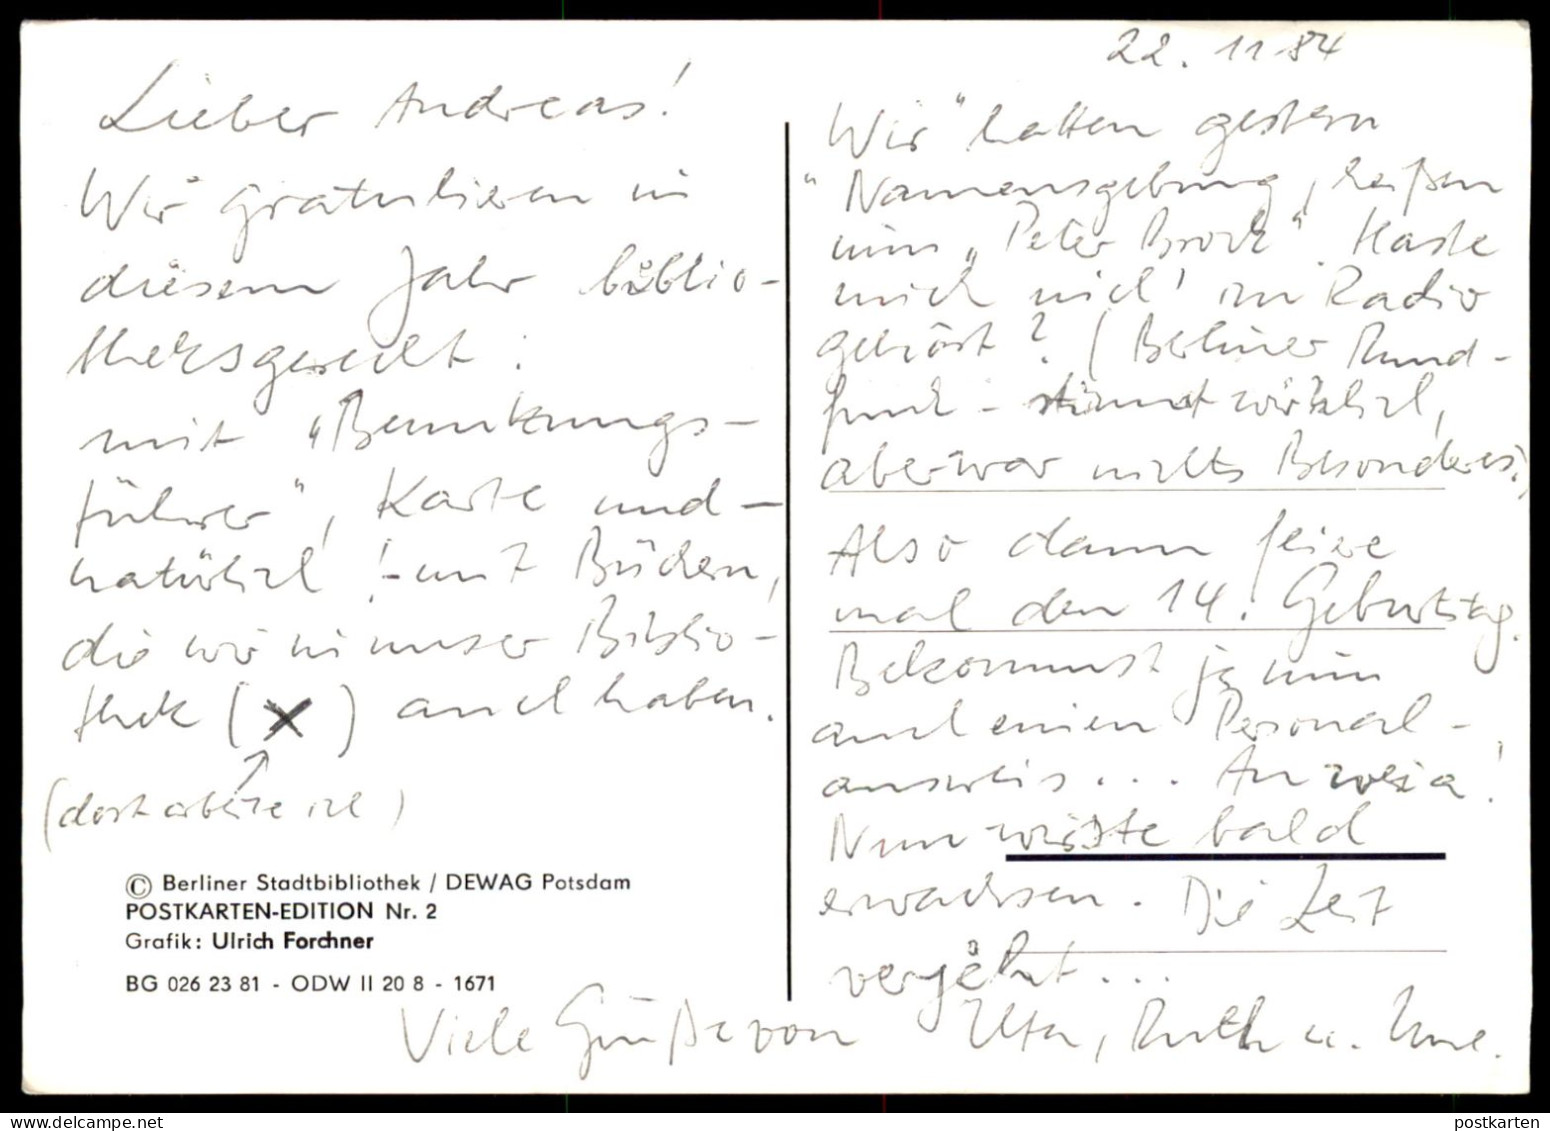 22. 11 84
Lieber Andreas!
Wir gratulieren in
diesem Jahr biblio-
theksgerecht:
mit "Benutzungs-
führer", Karte und -
natürlich! - mit Büchern,
die wir in unser Biblio-
thek (x) auch haben.
(dort arbeite ich)
© Berliner Stadtbibliothek / DEWAG Potsdam
POSTKARTEN-EDITION Nr. 2
Grafik: Ulrich Forchner
BG 026 23 81 - ODW II 20 8 - 1671
"Wir" hatten gestern
"Namensgebung", heißen
nun "Peter Brock". Haste
mich nich' im Radio
gehört? (Berliner Rund-
funk - stimmt wirklich,
aber war nichts Besonderes.)
Also dann feiere
mal den 14. Geburtstag.
Bekommst ja nun
auch einen Personal-
ausweis...
Nun bald
erwachsen. Die Zeit
vergeht...
Viele Grüße von Uta, Ruth u. Uwe.